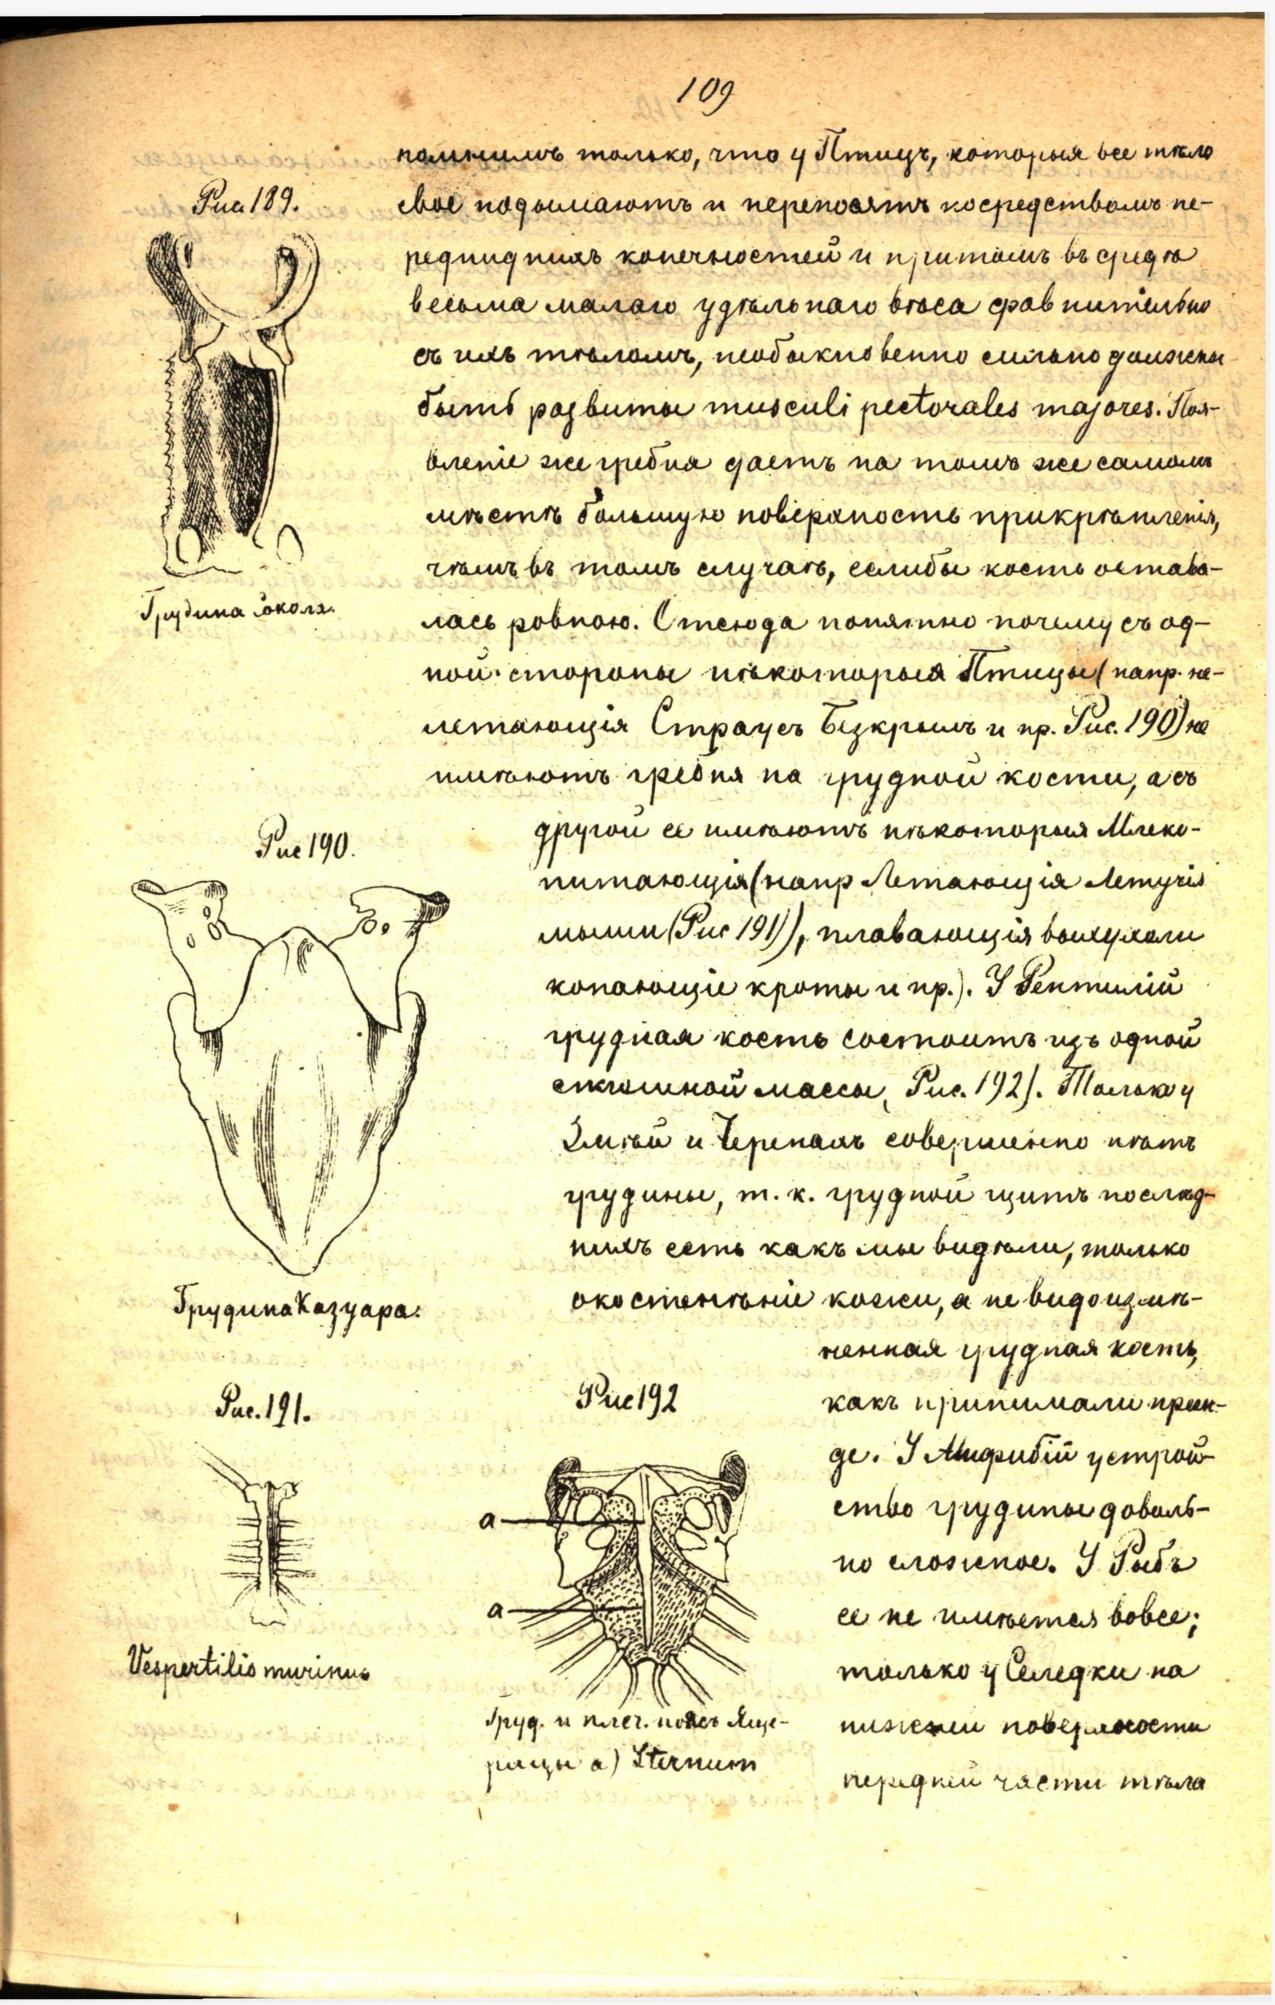 109
помнимъ только, что у Птицъ, которыя все тѣло
Рис 189.
свое подымаютъ и переносятъ посредствомъ пе-
реднидnихъ конечностей и притомъ въ средѣ
весьма малаго удѣльнаго вѣса сравнительно
съ ихъ тѣломъ, необыкновенно сильно должны
быть развиты musculi pectorales majores. Поя-
вленіе же гребня даетъ на томъ же самомъ
мѣстѣ большую поверхность прикрѣпленія,
чѣмъ въ томъ случаѣ, еслибы кость остава-
Грудина Сокола.
лась ровною. Отсюда понятно почему съ од-
ной стороны нѣкоторыя Птицы (напр. не-
летающія Страусъ Безкрылъ и пр. Рис. 190) не
имѣютъ гребня на грудной кости, а съ
другой ее имѣютъ нѣкоторыя Млеко-
Рис 190.
питающія (напр Летающія Летучія
мыши (Рис 191)), плавающія выхухоли
копающіе кроты и пр.). У Рептилій
грудная кость состоитъ изъ одной
сплошной массы, Рис. 192). Только у
Змѣй и Черепахъ совершенно нѣтъ
грудины, т. к. грудной щитъ послѣд-
нихъ есть какъ мы видѣли, только
окостенѣніе кожи, а не видоизмѣ-
Грудина Казуара.
ненная грудная кость,
Рис. 191.
Рис 192
какъ принимали преж-
де. У Амфибій устрой-
ство грудины доволь-
а
но сложное. У Рыбъ
а
ее не имѣется вовсе;
Vespertilio murinus
только у Селедки на
Груд. и плеч. поясъ Яще-
рицы а) Sternum
нижней поверхности
передней части тѣла